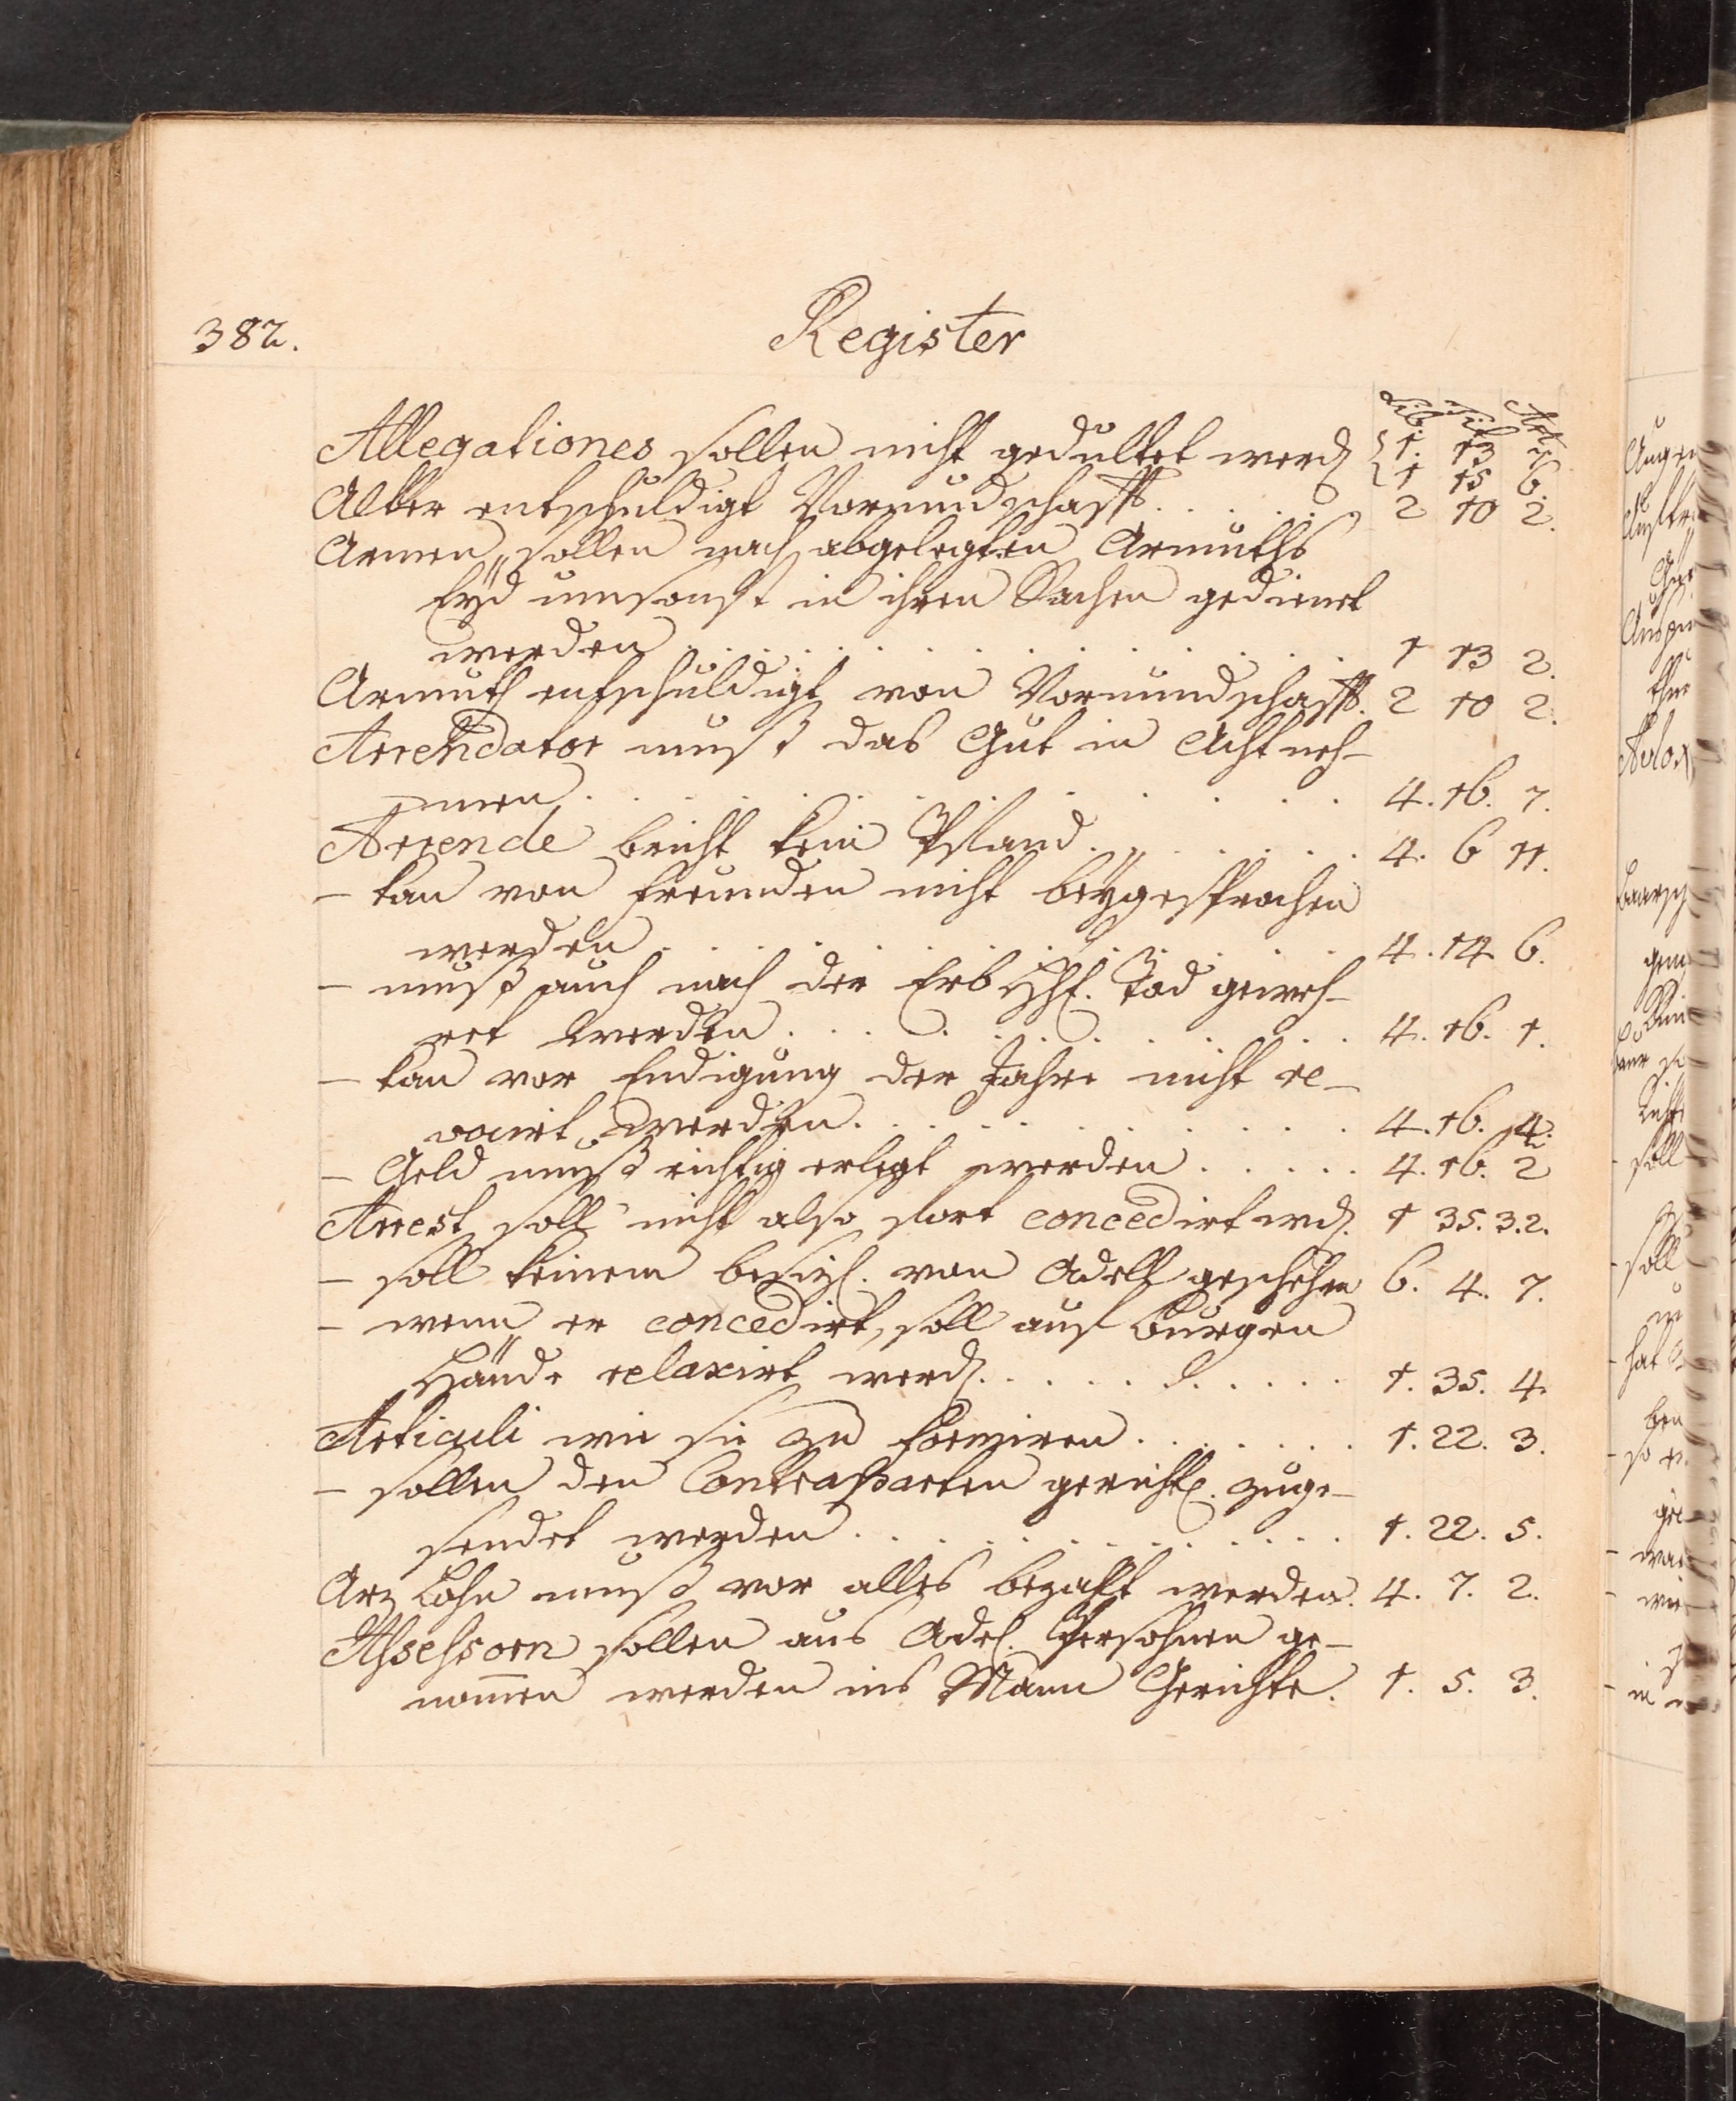 382.
Register
Lib. Tit. Art.
Allegationes sollen nicht gedultet werd. 1. 13 4
1 15 6.
Alter entschuldigt Vormundschafft. . . . . . 2 10 2.
Armen, sollen nach abgelegten Armuths
Eÿd umsonst in ihren Sachen gedienet
werden . . . . . . . . . . . . . . . 1 13 2.
Armuth entschuldigt von Vormundschafft. 2 10 2.
Arrendator muß das Gut in Acht neh-
men . . . . . . . . . . . . . . . 4. 16. 7.
Arrende bricht kein Pfand . . . . . . . 4. 6 11.
- kan von Freunden nicht beÿgesprochen
werden . . . . . . . . . . . . . . 4. 14. 6.
- muß auch nach der Erb Hh. Tod geweh-
ret werden . . . . . . . . . . . . 4. 16. 1.
- kan vor Endigung der Jahre nicht re-
vocirt werden . . . . . . . . . . . 4. 16. 4.
- Geld muß richtig erlegt werden . . . . . 4. 16. 2
Arrest soll nicht also fort concedirt wd. 1 35. 3.2.
- soll keinem besizl. von Adell geschehen 6. 4. 7.
- wenn er concedirt, soll auf Bürgen
Hände relaxirt werd. . . . . . . . . . 1. 35. 4.
Articuli wie sie zu formiren . . . . . . . 1. 22. 3.
- sollen den Contraparten gerichtl. zuge-
sendet werden . . . . . . . . . . . . 1. 22. 5.
Arz Lohn muß vor alles bezahlt werden. 4. 7. 2.
Assessorn sollen aus Adel. Persohnen ge-
nom̄en werden ins Mann Gerichte. 1. 5. 3.